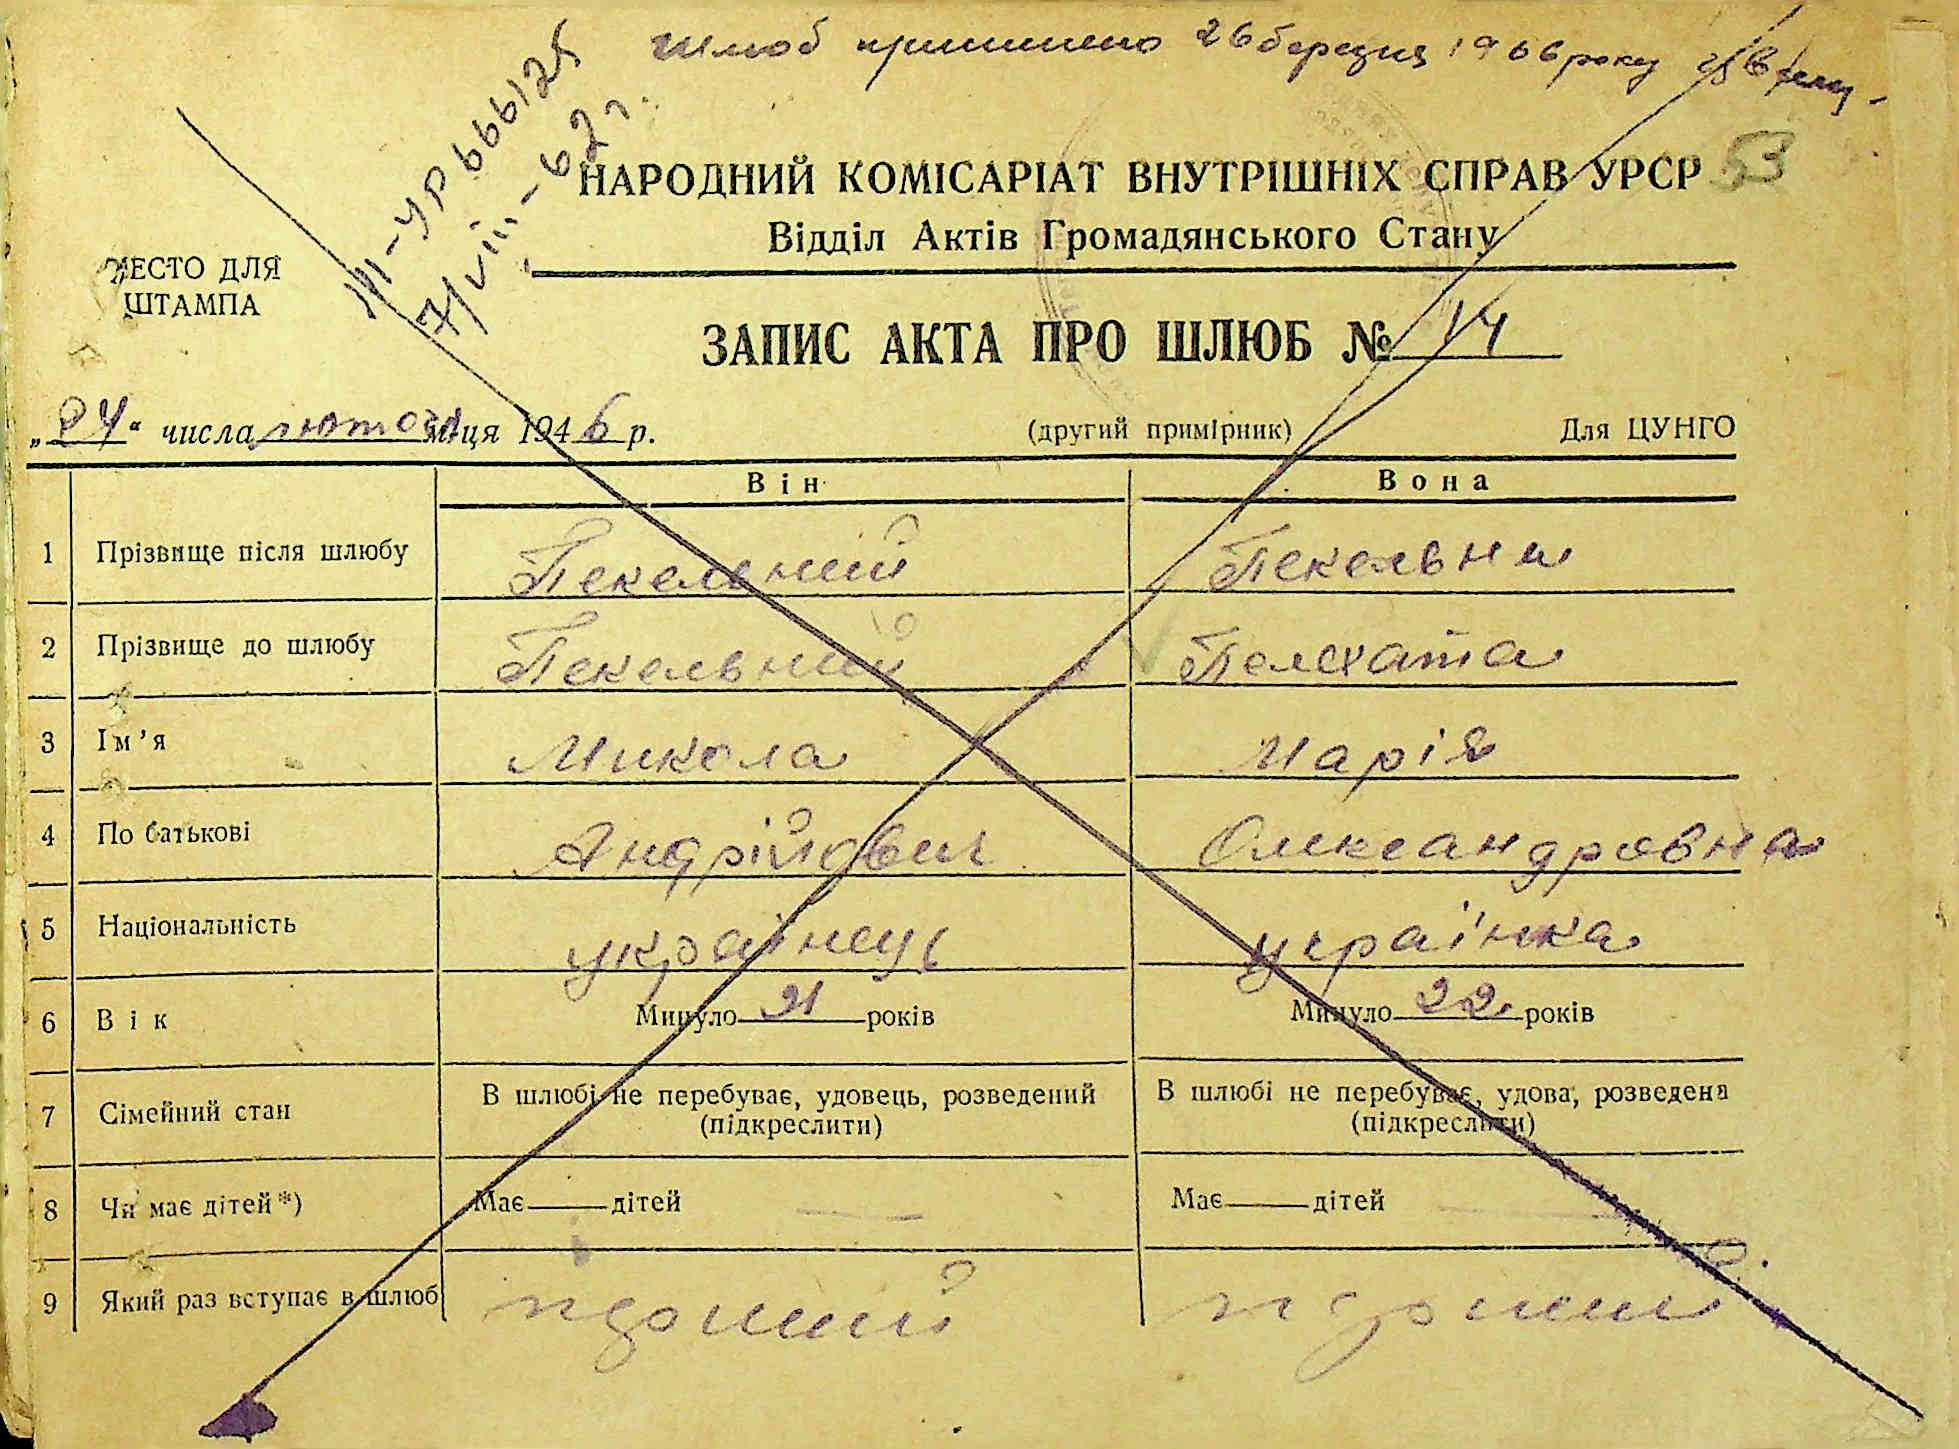 Шлюб припинено 26 березня 1966 року
III-УР 666125
7/VIII-62 г.
53
НАРОДНИЙ КОМІСАРІАТ ВНУТРІШНІХ СПРАВ УРСР
Відділ Актів Громадянського Стану
МЕСТО ДЛЯ
ШТАМПА
ЗАПИС АКТА ПРО ШЛЮБ № 14
„24“ числа лютого м-ця 1946 р. (другий примірник) Для ЦУНГО
Він Вона
1 Прізвище після шлюбу Пекельний Пекельни
2 Прізвище до шлюбу Пекельний Пелехата
3 Ім'я Микола Марія
4 По батькові Андрійович Олександровна
5 Національність українець українка
6 Вік Минуло 21 років Минуло 22 років
7 Сімейний стан В шлюбі не перебуває, удовець, розведений В шлюбі не перебуває, удова, розведена
(підкреслити) (підкреслити)
8 Чи має дітей*) Має — дітей Має — дітей
9 Який раз вступає в шлюб перший перший